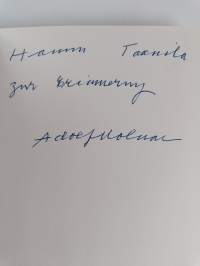 Hannu Taanila
zur Erinnerung
Adolf Molnar